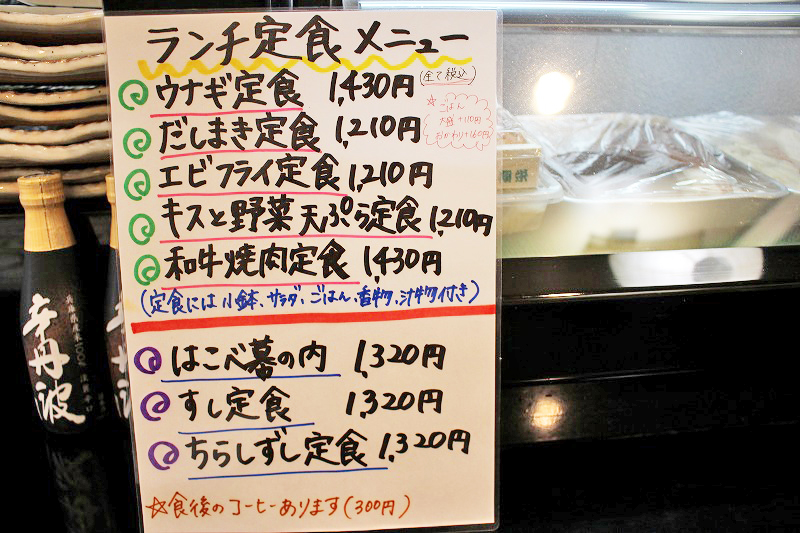 ランチ定食メニュー
ウナギ定食 1,430円 (全て税込)
☆ごはん
大盛+110円
おかわり+160円
だしまき定食 1,210円
エビフライ定食 1,210円
キスと野菜天ぷら定食 1,210円
和牛焼肉定食 1,430円
(定食には小鉢、サラダ、ごはん、香物、汁物付き)
はこべ幕の内 1,320円
すし定食 1,320円
ちらしずし定食 1,320円
☆食後のコーヒーあります(300円)
辛丹波